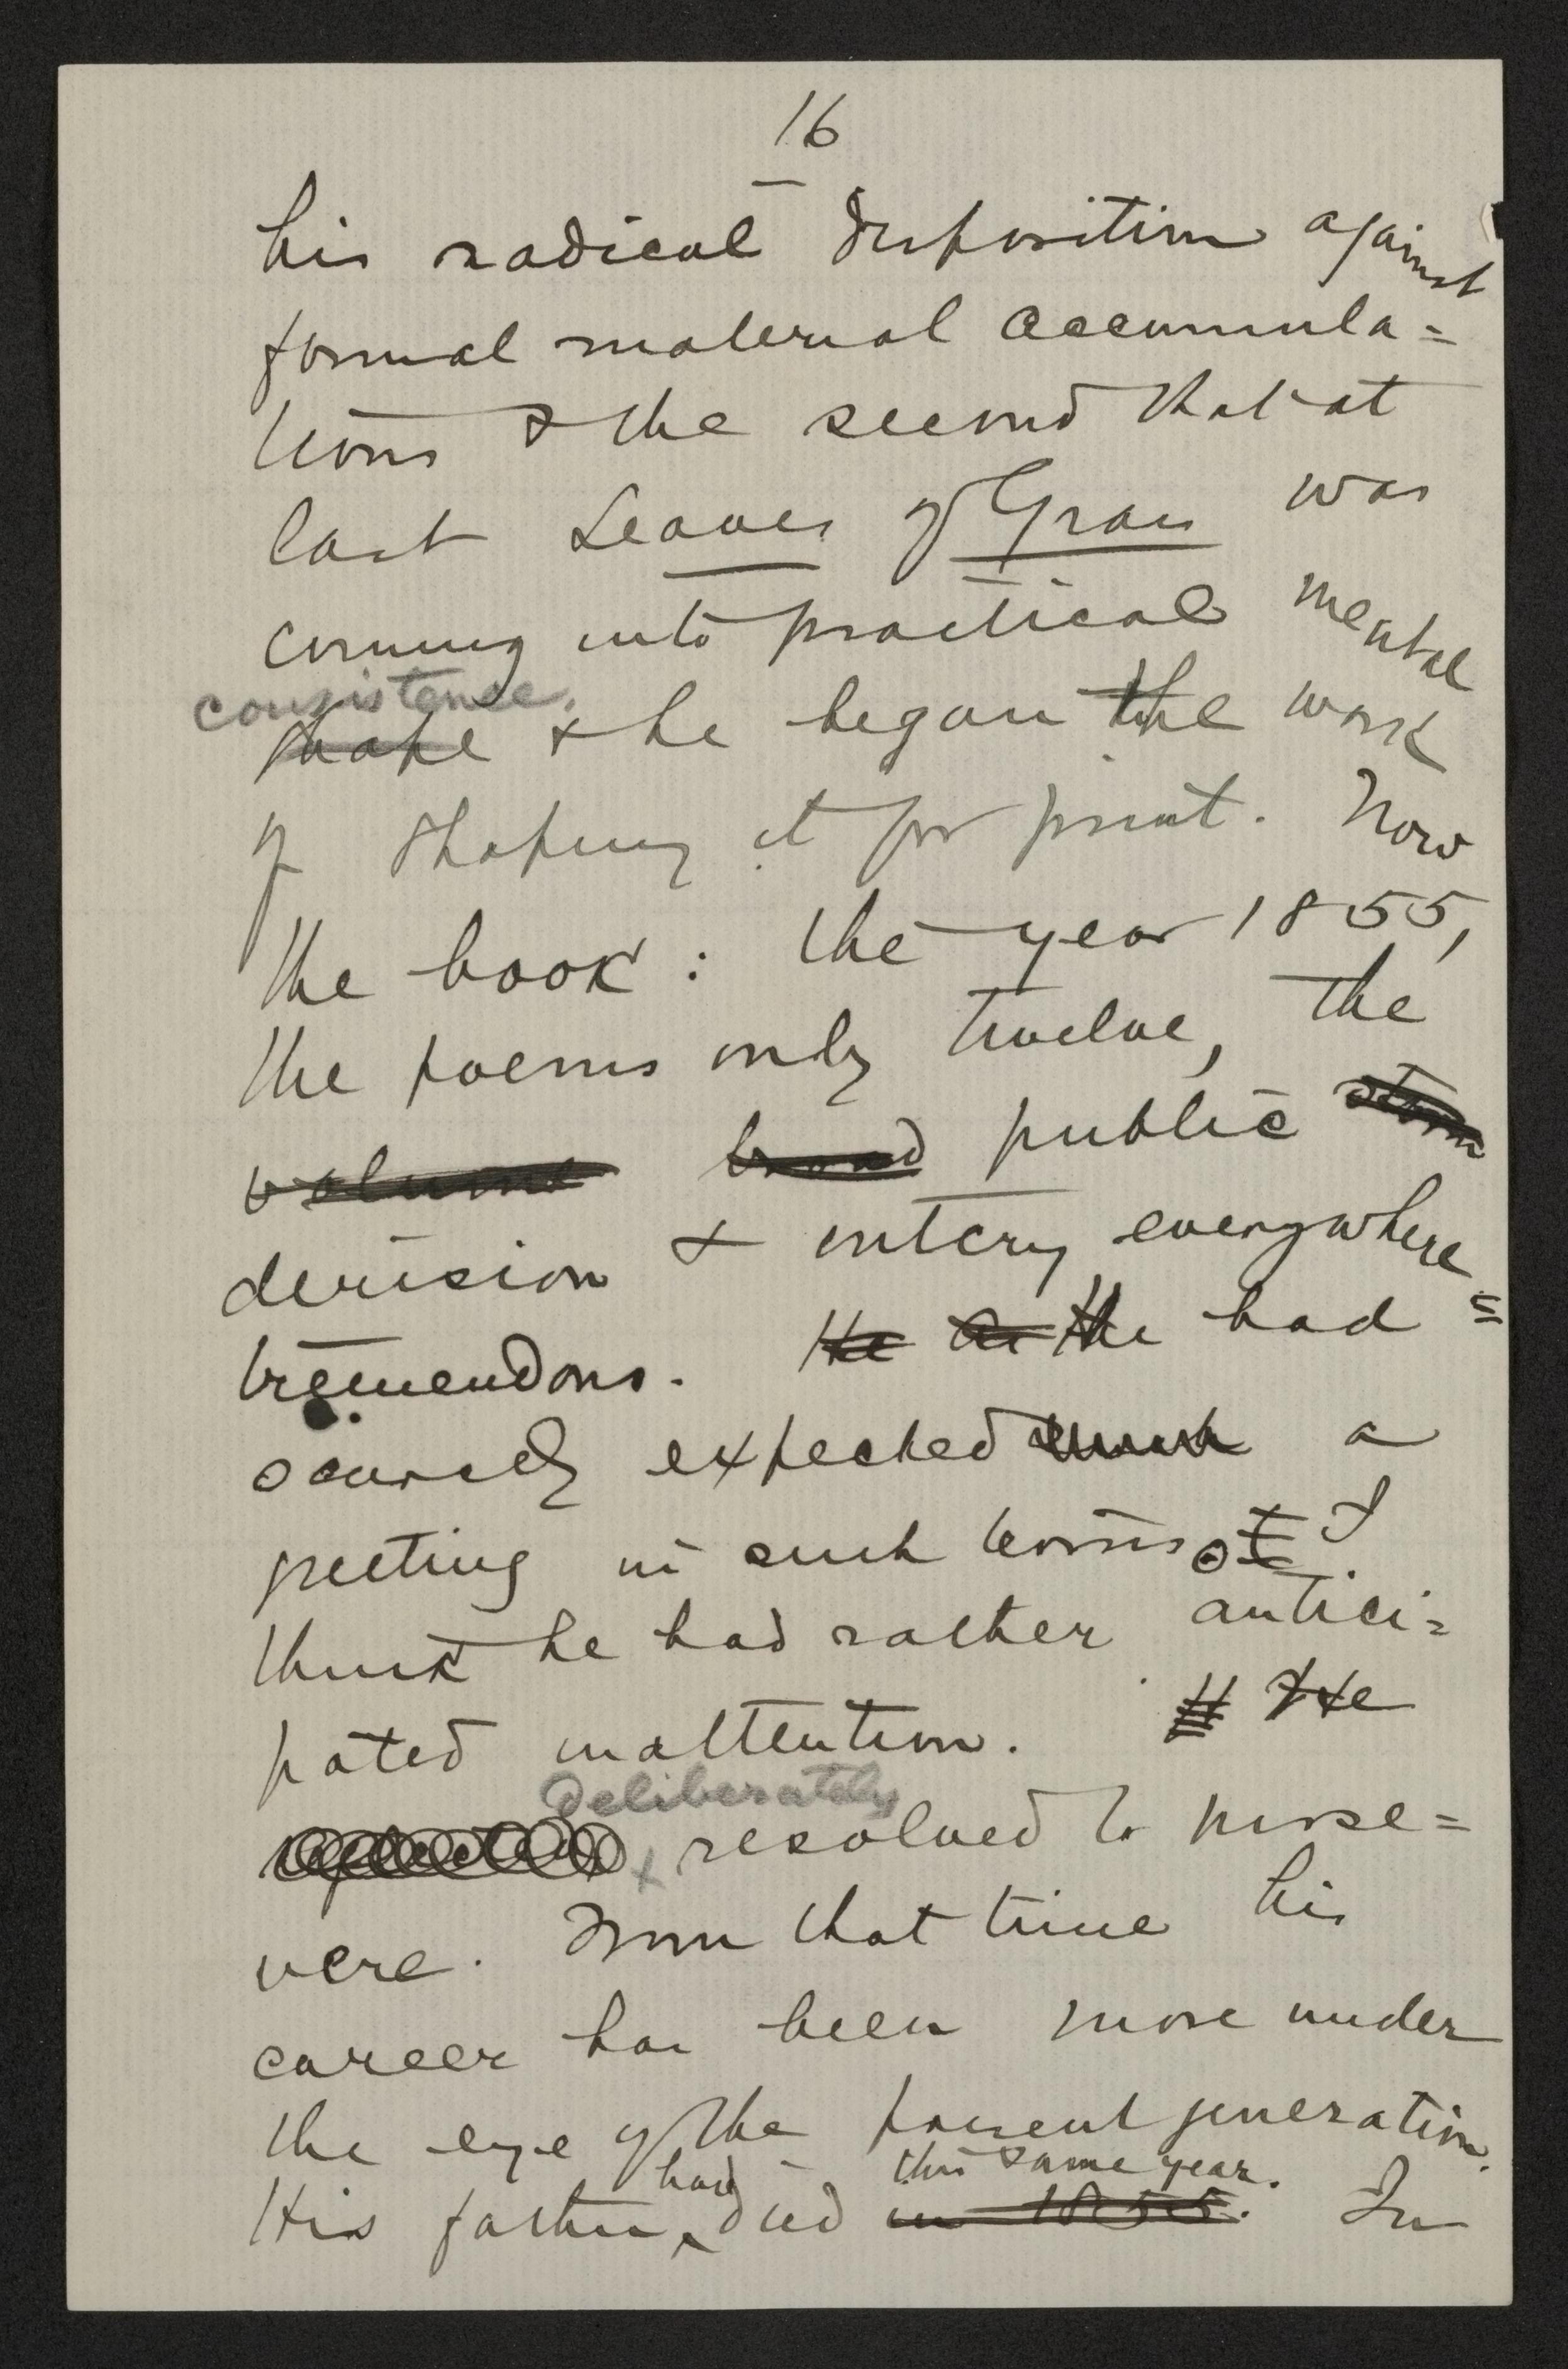 16
his radical disposition against
formal material accumula=
tions & the second that at
last Leaves of Grass was
coming into practical mental
consistence,
shape & he began the work
of shaping it for print. Now
the book: the year 1855,
the poems only twelve, the
volume broad public storm
derision & outcry everywhere =
tremendous. He he had
scarcely expected such a
greeting in such terms I
think he had rather antici=
pated inattention. He
deliberately
resolved to perse=
vere. From that time his
career has been more under
the eye of the present generation.
had this same year.
His father died in 1855. In